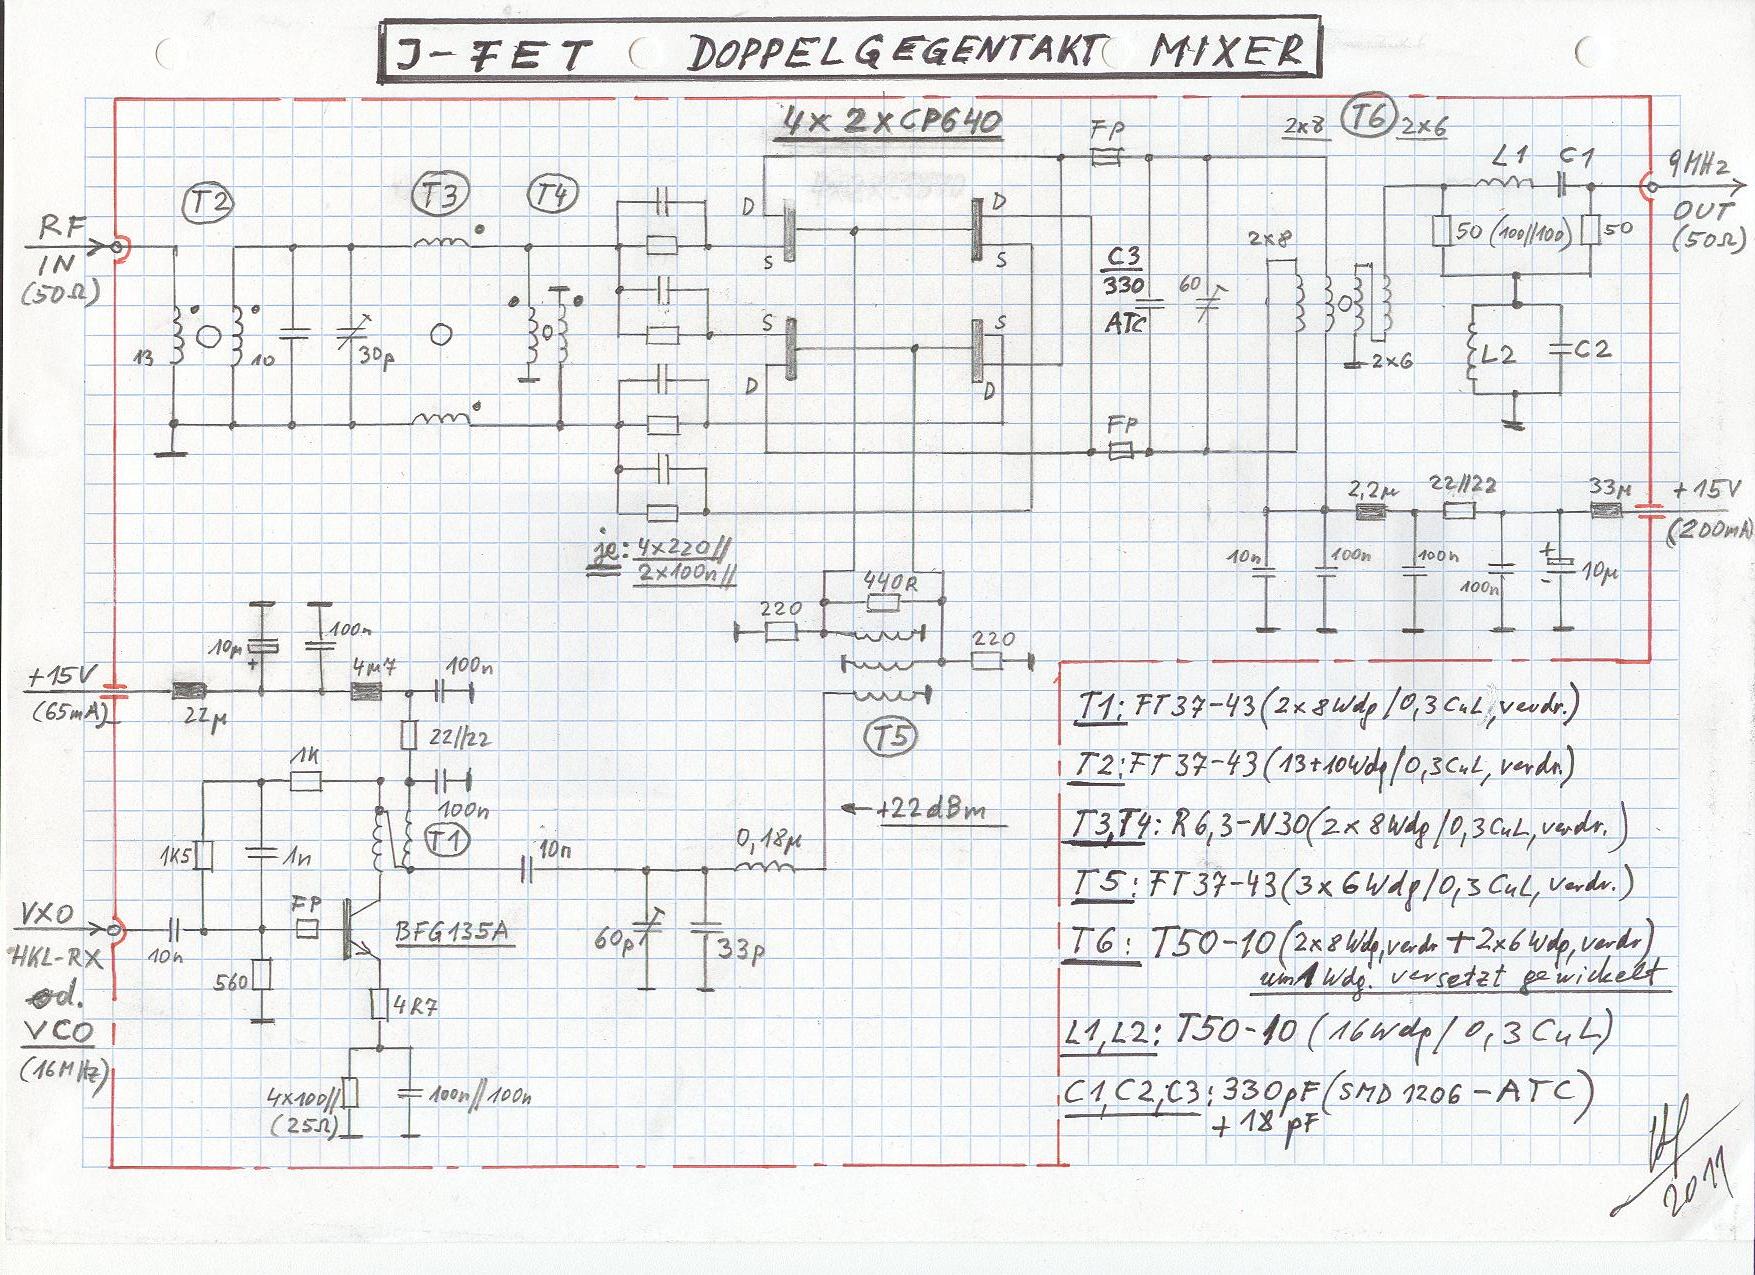 J-FET DOPPELGEGENTAKT MIXER
4x 2xCP640
FP
2x8
T6
2x6
L1
C1
9MHz
OUT
(50Ω)
T2
T3
T4
RF
IN
(50Ω)
D
D
S
S
50 (100//100)
50
2x8
C3
330
ATC
60
S
S
13
10
30p
2x6
L2
C2
D
D
FP
2,2µ
22//22
33µ
+15V
(200mA)
je: 4x220//
2x100n//
10n
100n
100n
100n
+
-
10µ
440R
220
220
10µ
+
100n
+15V
(65mA)
22µ
4µ7
100n
T5
22//22
1K
100n
+22dBm
T1
1K5
1n
10n
0,18µ
VXO
HKL-RX
od.
VCO
(16MHz)
10n
FP
BFG135A
60p
33p
560
4R7
4x100//
(25Ω)
100n//100n
T1: FT37-43 (2x8Wdg/0,3CuL, verdr.)
T2: FT37-43 (13+10Wdg/0,3CuL, verdr.)
T3,T4: R6,3-N30 (2x8Wdg/0,3CuL, verdr.)
T5: FT37-43 (3x6Wdg/0,3CuL, verdr.)
T6: T50-10 (2x8Wdg, verdr + 2x6Wdg, verdr)
um 1 Wdg. versetzt gewickelt
L1,L2: T50-10 (16Wdg/0,3CuL)
C1,C2,C3: 330pF (SMD1206-ATC)
+18pF
2011